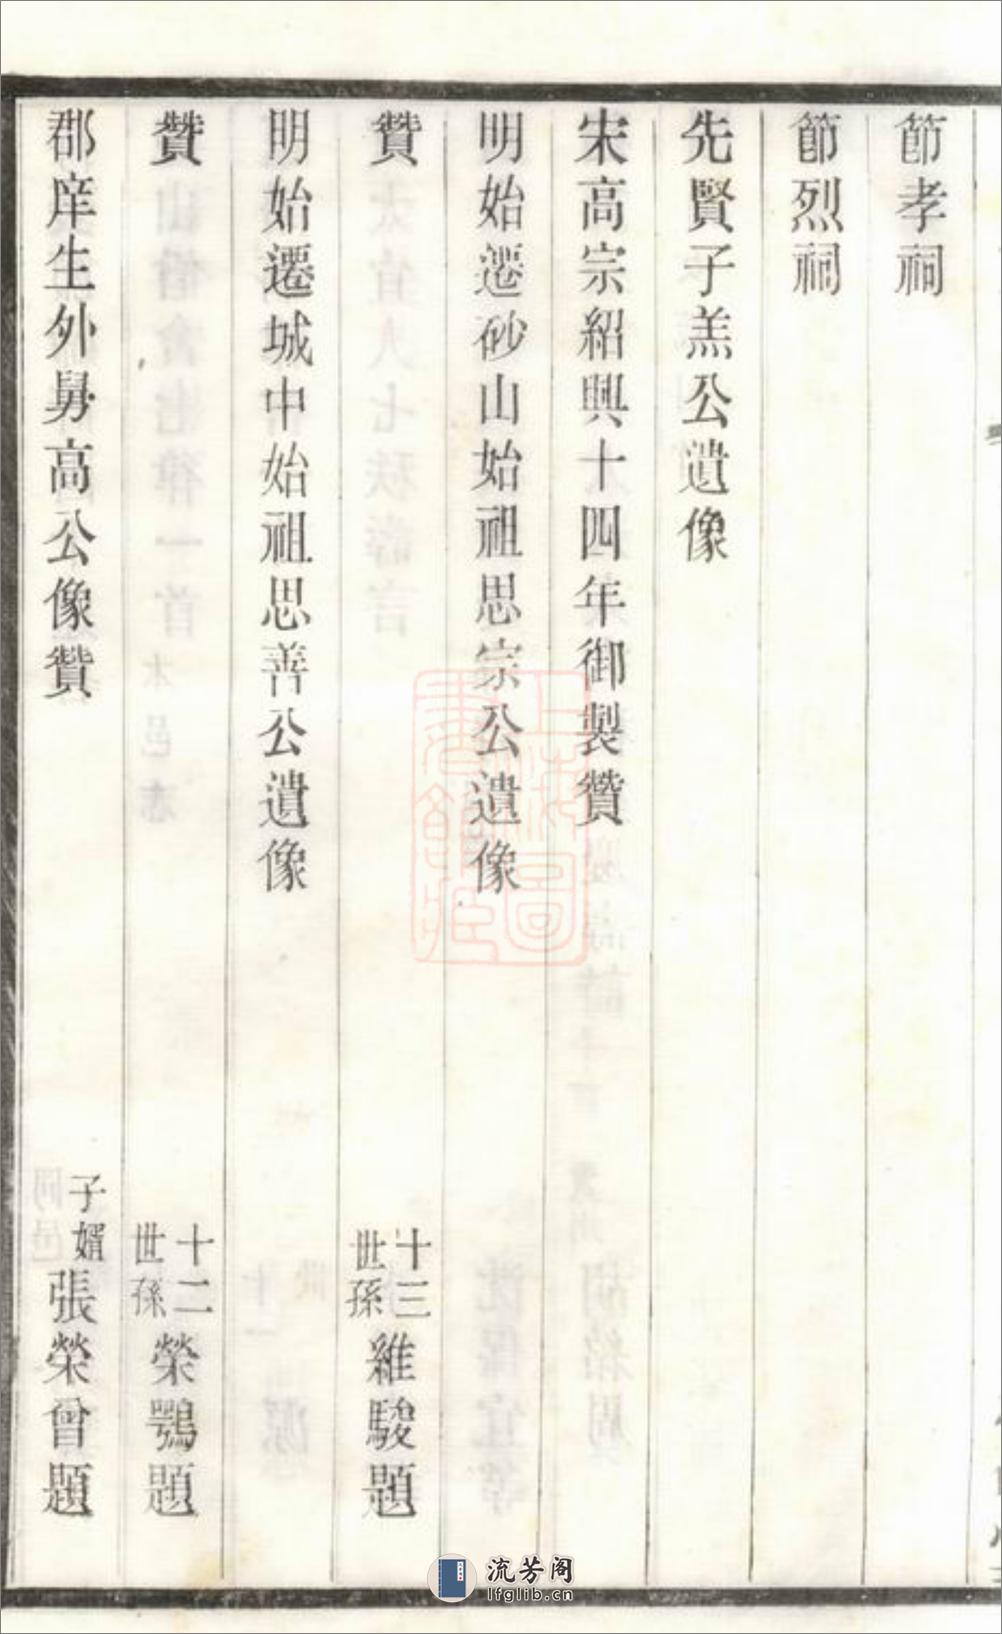 節孝祠
節烈祠
先賢子羔公遺像
宋高宗紹興十四年御製贊
明始遷砂山始祖思宗公遺像
贊 十三世孫維駿題
明始遷城中始祖思善公遺像
贊 十二世孫榮鶚題
郡庠生外舅高公像贊 子婿張榮曾題
上海圖書館藏
流芳阁
lfglib.cn